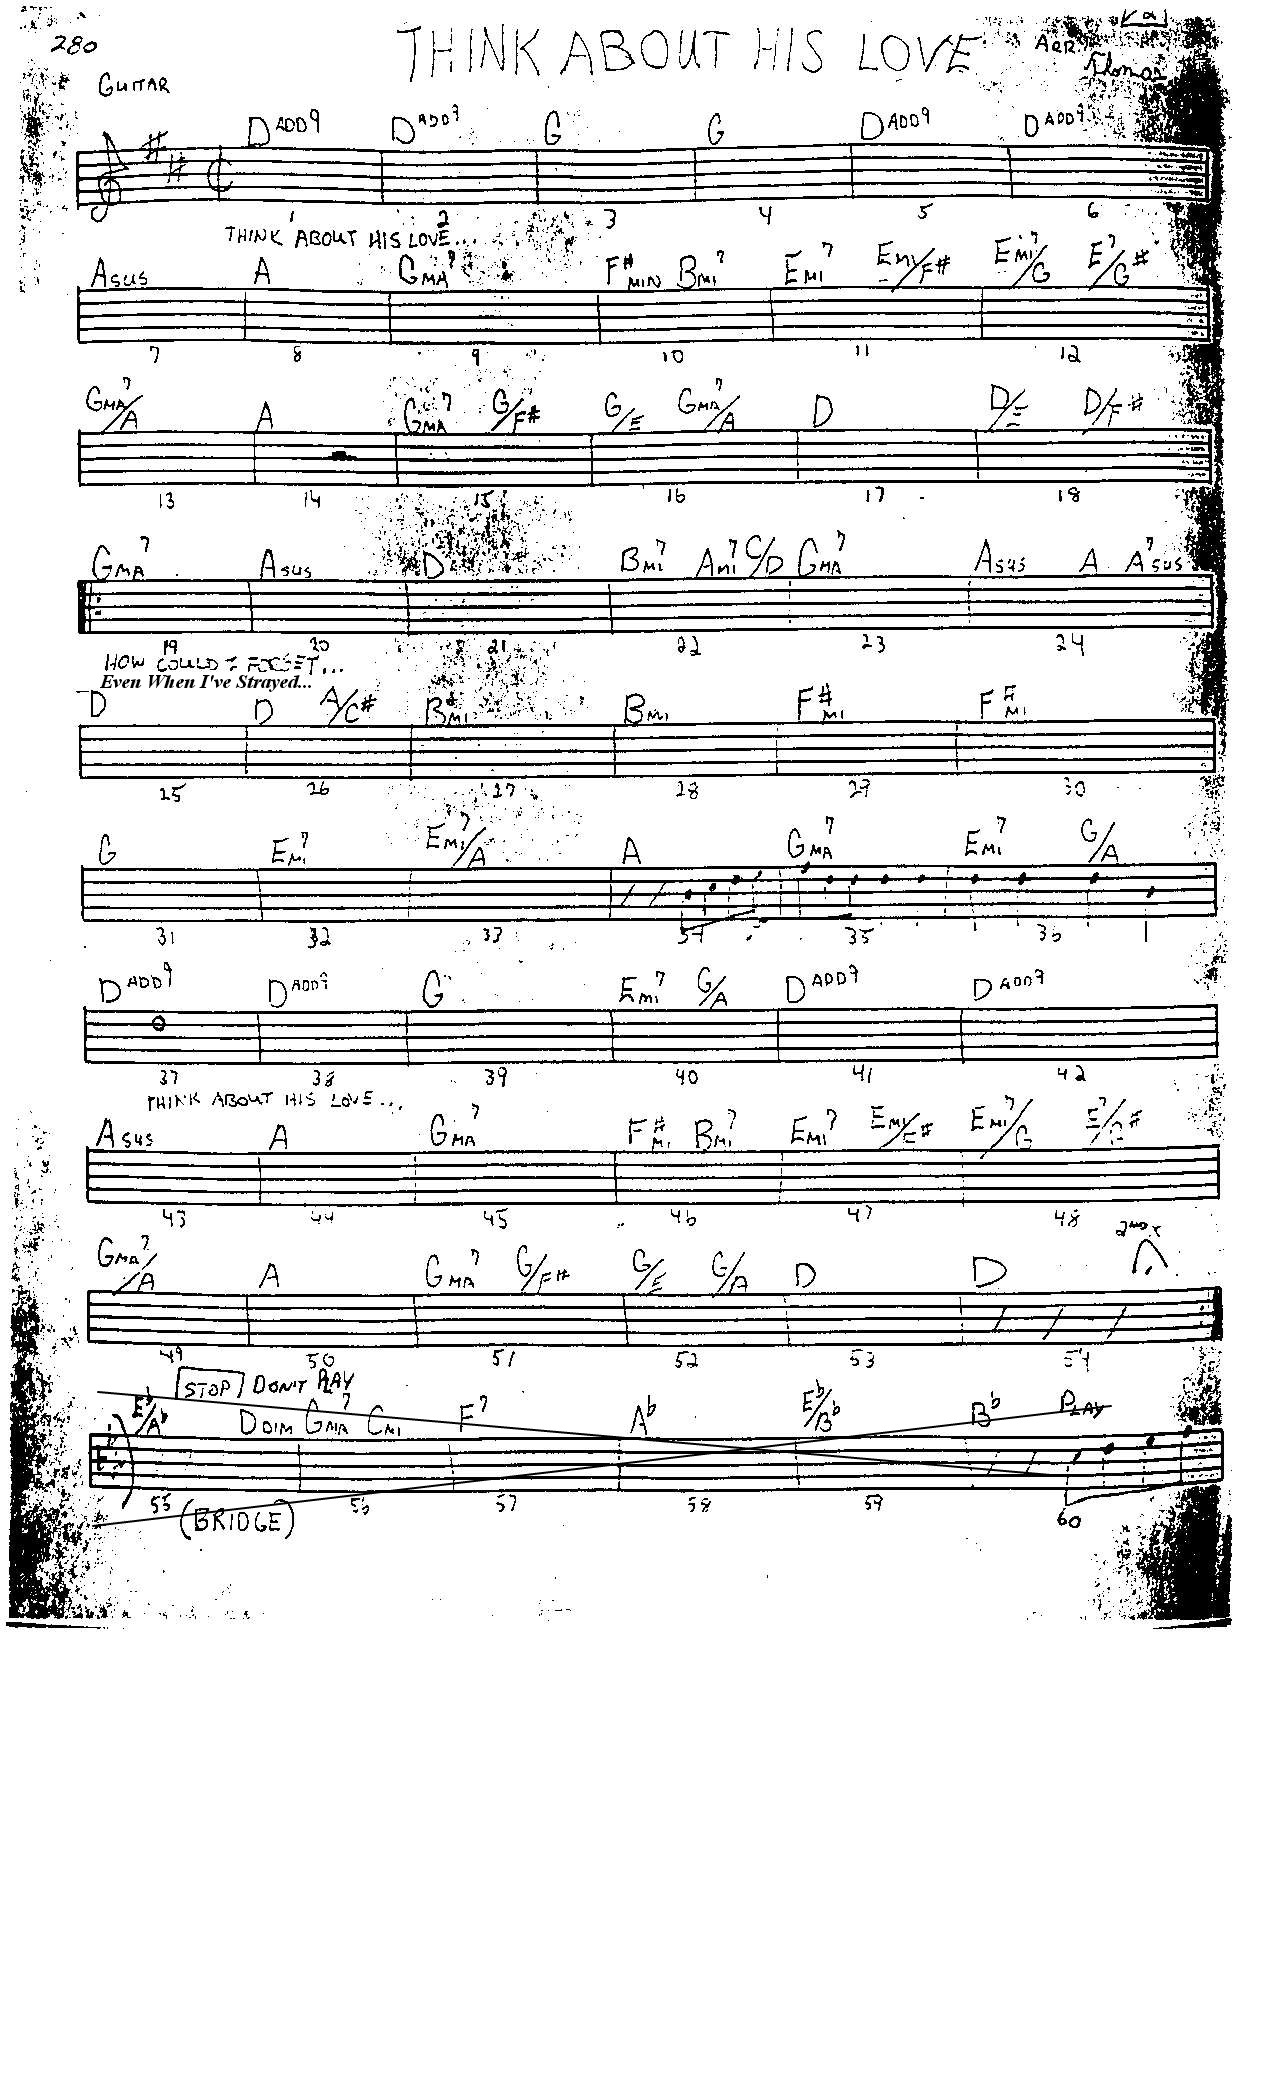 280
THINK ABOUT HIS LOVE
ARR Thomas
GUITAR
D ADD9 D ADD9 G G D ADD9 D ADD9
1 2 3 4 5 6
THINK ABOUT HIS LOVE...
Asus A GMA7 F#MIN BMI7 EMI7 EMI/F# EMI7/G E7/G#
7 8 9 10 11 12
GMA7/A A GMA7 G/F# G/E GMA7/A D D/E D/F#
13 14 15 16 17 18
GMA7 Asus D BMI7 AMI7 C/D GMA7 Asus A A7sus
19 20 21 22 23 24
HOW COULD I FORGET...
Even When I've Strayed...
D D A/C# BMI BMI F#MI F#MI
25 26 27 28 29 30
G EMI7 EMI7/A A GMA7 EMI7 G/A
31 32 33 34 35 36
D ADD9 D ADD9 G EMI7 G/A D ADD9 D ADD9
37 38 39 40 41 42
THINK ABOUT HIS LOVE...
Asus A GMA7 F#MI BMI7 EMI7 EMI/F# EMI7/G E7/G#
43 44 45 46 47 48
2ND X
GMA7/A A GMA7 G/F# G/E G/A D D
49 50 51 52 53 54
STOP DON'T PLAY
Eb/Ab DDIM GMA7 CMI F7 Ab Eb/Bb Bb PLAY
55 56 57 58 59 60
(BRIDGE)